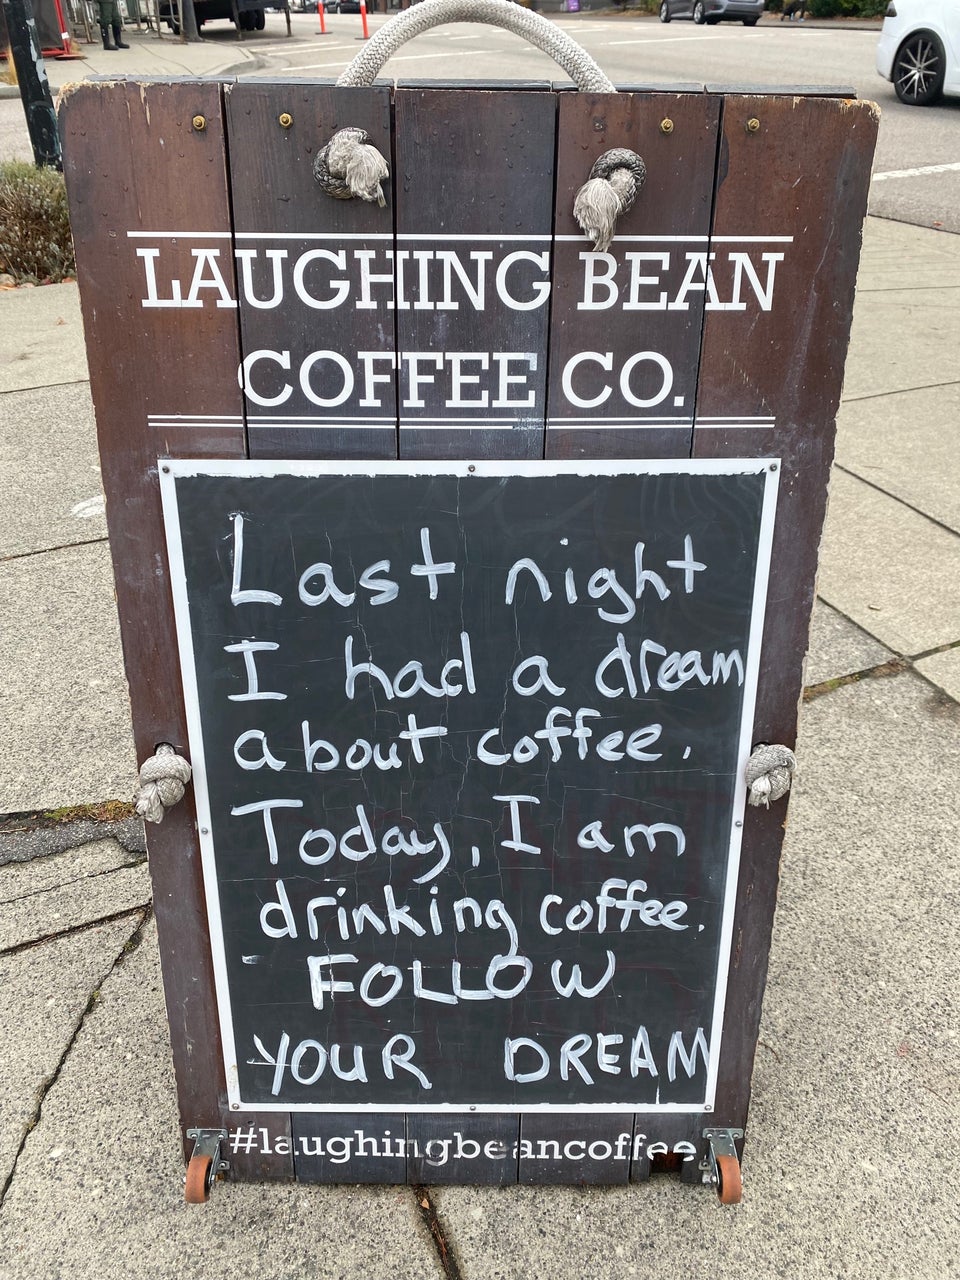 LAUGHING BEAN
COFFEE CO.
Last night
I had a dream
about coffee.
Today, I am
drinking coffee.
FOLLOW
YOUR DREAM
#laughingbeancoffee